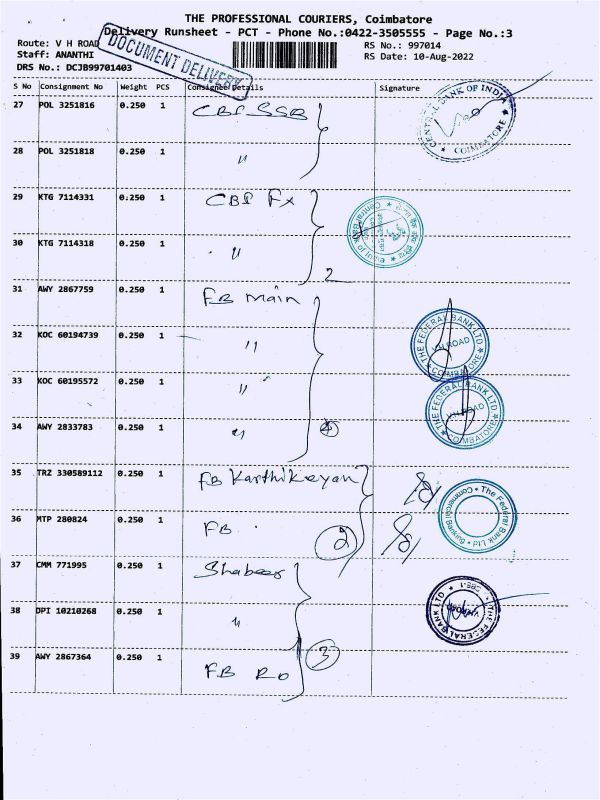 THE PROFESSIONAL COURIERS, Coimbatore
Delivery Runsheet - PCT - Phone No.:0422-3505555 - Page No.:3
Route: V H ROAD
RS No.: 997014
Staff: ANANTHI
RS Date: 10-Aug-2022
DRS No.: DCJB99701403
DOCUMENT DELIVERY
S No Consignment No Weight PCS Consignee Details Signature
27 POL 3251816 0.250 1 CBI SSB
28 POL 3251818 0.250 1 "
CENTRAL BANK OF INDIA
★ COIMBATORE ★
29 KTG 7114331 0.250 1 CBI Fx
30 KTG 7114318 0.250 1 "
2
Central Bank of India
31 AWY 2867759 0.250 1 FB main
32 KOC 60194739 0.250 1 "
33 KOC 60195572 0.250 1 "
34 AWY 2833783 0.250 1 "
4
★ THE FEDERAL BANK LTD ★
VH ROAD
COIMBATORE
★ THE FEDERAL BANK LTD ★
VH ROAD
COIMBATORE
35 TRZ 330589112 0.250 1 FB Karthikeyan
36 MTP 280824 0.250 1 FB
2
The Federal Bank Ltd
Commercial Banking
37 CMM 771995 0.250 1 Shabeer
38 DPI 10210268 0.250 1 "
39 AWY 2867364 0.250 1 FB RO
3
THE FEDERAL BANK LTD